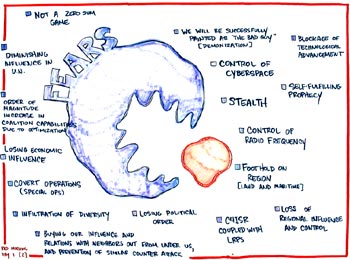 NOT A ZERO SUM
GAME
FEARS
WE WILL BE SUCCESSFULLY
PAINTED AS "THE BAD GUY"
[DEMONIZATION]
BLOCKAGE OF
TECHNOLOGICAL
ADVANCEMENT
DIMINISHING
INFLUENCE IN
U.N.
CONTROL OF
CYBERSPACE
SELF-FULFILLING
PROPHECY
ORDER OF
MAGNITUDE
INCREASE IN
COALITION CAPABILITIES
DUE TO OPTIMIZATION
STEALTH
CONTROL OF
RADIO FREQUENCY
LOSING ECONOMIC
INFLUENCE
FOOTHOLD ON
REGION
[LAND AND MARITIME]
COVERT OPERATIONS
(SPECIAL OPS)
INFILTRATION OF DIVERSITY
LOSING POLITICAL
ORDER
C4ISR
COUPLED WITH
LRPS
LOSS OF
REGIONAL INFLUENCE
AND CONTROL
BUYING OUR INFLUENCE AND
RELATIONS WITH NEIGHBORS OUT FROM UNDER US,
AND PREVENTION OF SIMILAR COUNTER ATTACK
DAY 1